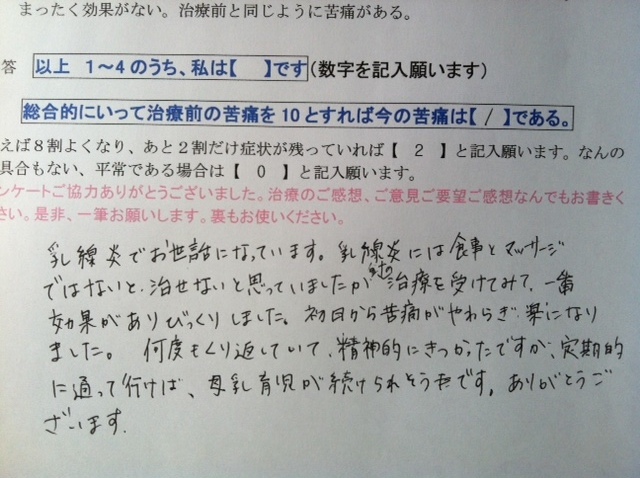 まったく効果がない。治療前と同じように苦痛がある。
答 以上 1～4のうち、私は【　　】です(数字を記入願います)
総合的にいって治療前の苦痛を10とすれば今の苦痛は【 / 】である。
えば８割よくなり、あと２割だけ症状が残っていれば【　２　】と記入願います。なんの
具合もない、平常である場合は【　０　】と記入願います。
ンケートご協力ありがとうございました。治療のご感想、ご意見ご要望ご感想なんでもお書きく
さい。是非、一筆お願いします。裏もお使いください。
乳線炎でお世話になっています。乳線炎には食事とマッサージ
ではないと、治せないと思っていましたが 治療を受けてみて、一番
効果がありびっくりしました。初日から苦痛がやわらぎ 楽になり
ました。 何度もくり返していて、精神的にきつかったですが、定期的
に通って行けば、母乳育児が続けられそうです。ありがとうご
ざいます.